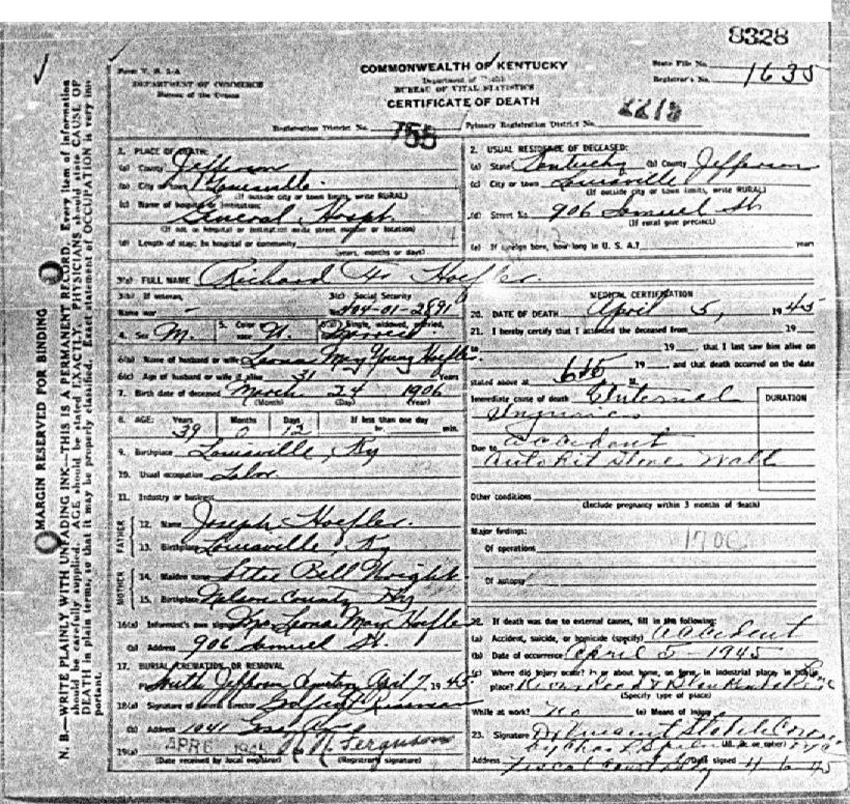 8328
Form V. S. 1-A
DEPARTMENT OF COMMERCE
Bureau of the Census
COMMONWEALTH OF KENTUCKY
Department of Health
BUREAU OF VITAL STATISTICS
CERTIFICATE OF DEATH
State File No.
Registrar's No. 1635
Registration District No. 755 Primary Registration District No.
MARGIN RESERVED FOR BINDING
N. B.—WRITE PLAINLY WITH UNFADING INK—THIS IS A PERMANENT RECORD. Every item of information
should be carefully supplied. AGE should be stated EXACTLY. PHYSICIANS should state CAUSE OF
DEATH in plain terms, so that it may be properly classified. Exact statement of OCCUPATION is very im-
portant.
1. PLACE OF DEATH:
(a) County Jefferson
(b) City or town Louisville
(If outside city or town limits, write RURAL)
(c) Name of hospital or institution:
General Hospt.
(If not in hospital or institution write street number or location)
(d) Length of stay: In hospital or community
(years, months or days)
2. USUAL RESIDENCE OF DECEASED:
(a) State Kentucky (b) County Jefferson
(c) City or town Louisville
(If outside city or town limits, write RURAL)
(d) Street No. 906 Samuel St
(If rural give precinct)
(e) If foreign born, how long in U. S. A.? years
3(a) FULL NAME Richard Hoefler
3(b) If veteran,
Name war -
3(c) Social Security
No. 404-01-2891
4. Sex M. 5. Color or race W. 6(a) Single, widowed, married, Married
6(b) Name of husband or wife Leona May Young Hoefler
6(c) Age of husband or wife if alive 31 Years
7. Birth date of deceased March 24 1906
(Month) (Day) (Year)
8. AGE: Years Months Days If less than one day
39 0 12 hr. min.
9. Birthplace Louisville, Ky
10. Usual occupation Labor
11. Industry or business
FATHER
12. Name Joseph Hoefler
13. Birthplace Louisville, Ky
MOTHER
14. Maiden name Bell Wright
15. Birthplace Nelson County Ky
16(a) Informant's own signature Mrs Leona May Hoefler
(b) Address 906 Samuel St.
17. BURIAL, CREMATION, OR REMOVAL
South Jefferson April 7, 1945
18(a) Signature of funeral director
(b) Address 1041
19(a) APR 6 1945 Ferguson
(Date received by local registrar) (Registrar's signature)
MEDICAL CERTIFICATION
20. DATE OF DEATH April 5, 1945
21. I hereby certify that I attended the deceased from 19
19 , that I last saw him alive on
19 and that death occurred on the date
stated above at M.
Immediate cause of death Internal
Injuries
DURATION
Due to accident
Auto hit Stone Wall
Other conditions
(Include pregnancy within 3 months of death)
Major findings:
Of operations
Of autopsy
22. If death was due to external causes, fill in the following:
(a) Accident, suicide, or homicide (specify) accident
(b) Date of occurrence April 5-1945
(c) Where did injury occur? In or about home, on farm, in industrial place, in public
place?
(Specify type of place)
While at work? No (e) Means of injury
23. Signature
Address Fiscal Court Date signed 4-6-45